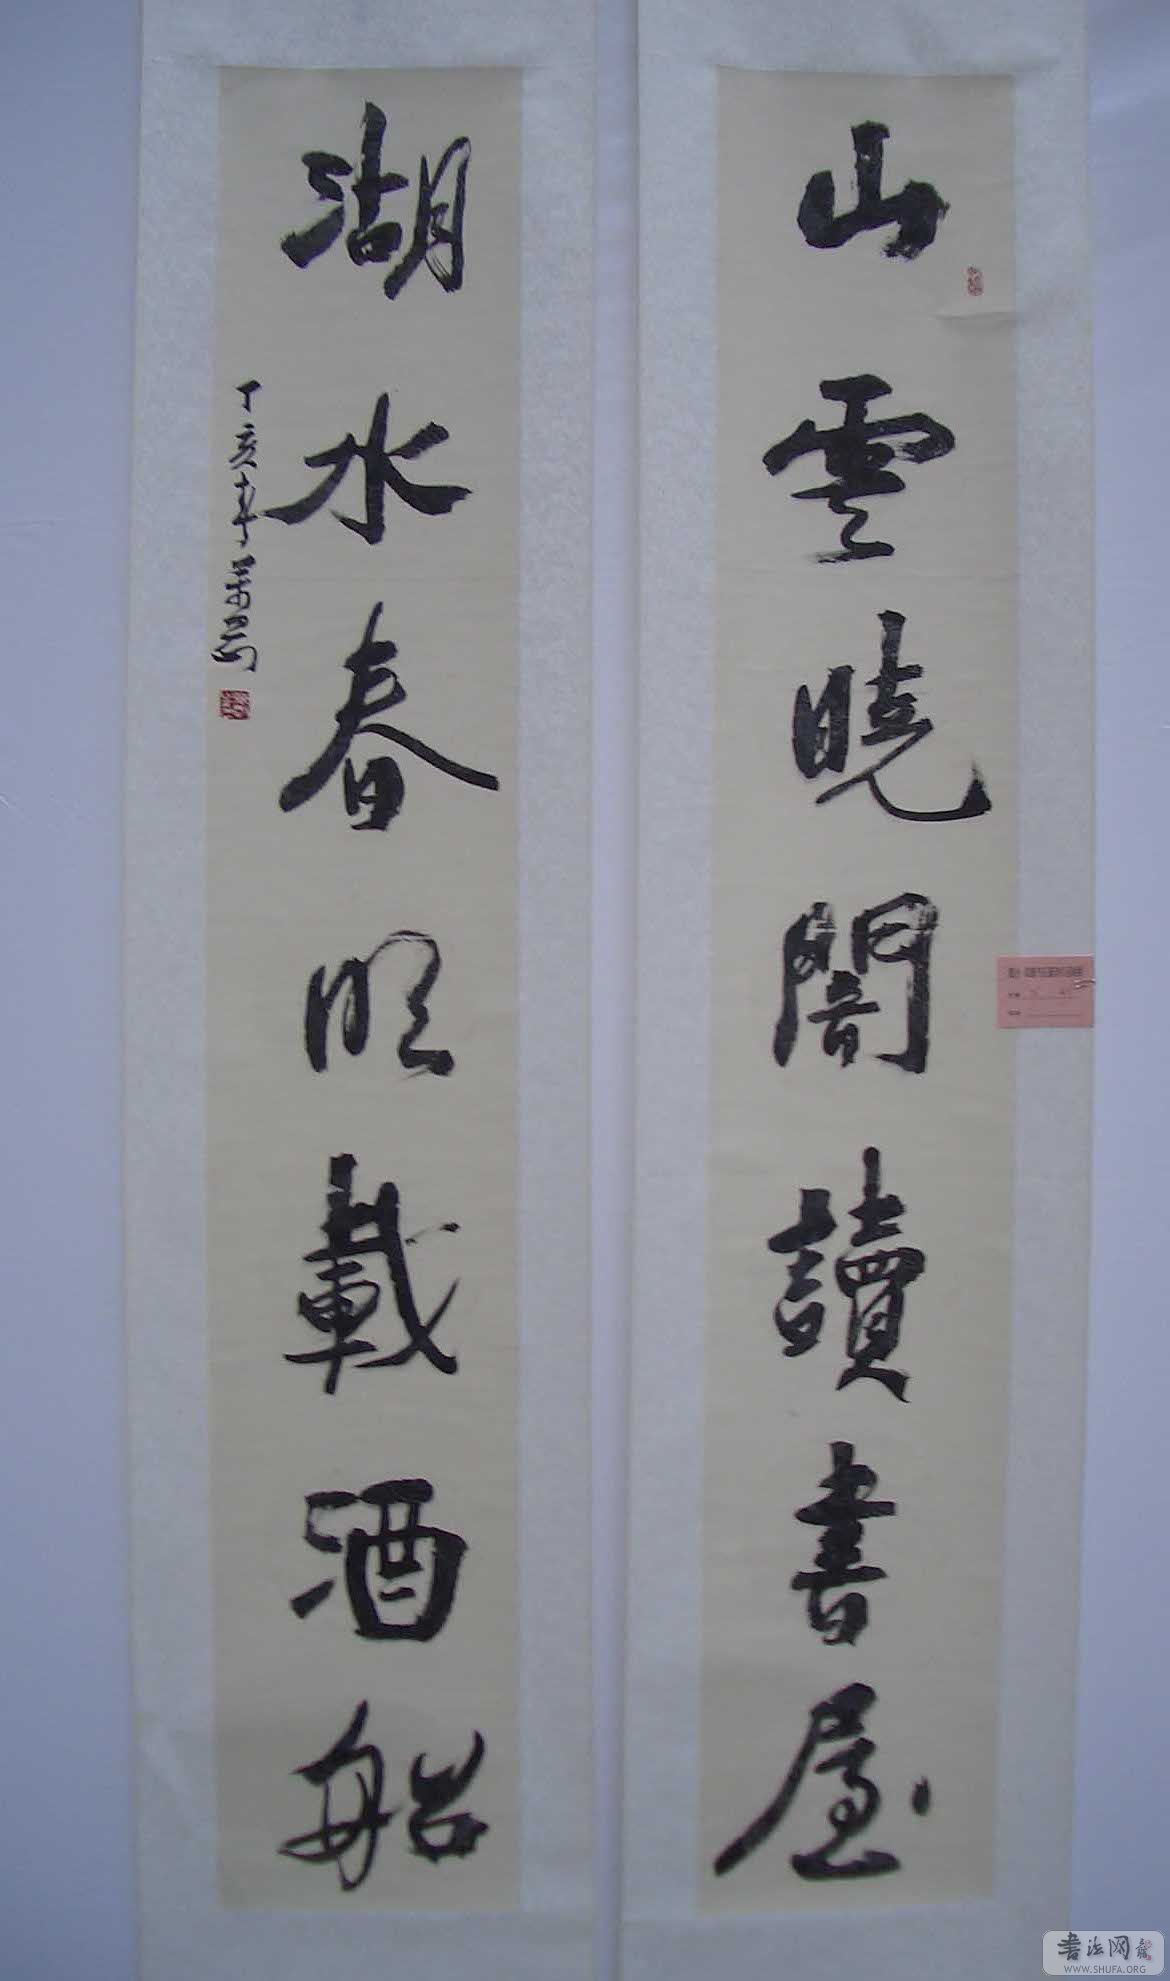 山雲曉闇讀書屋
湖水春明載酒船
丁亥年
書法网
WWW.SHUFA.ORG